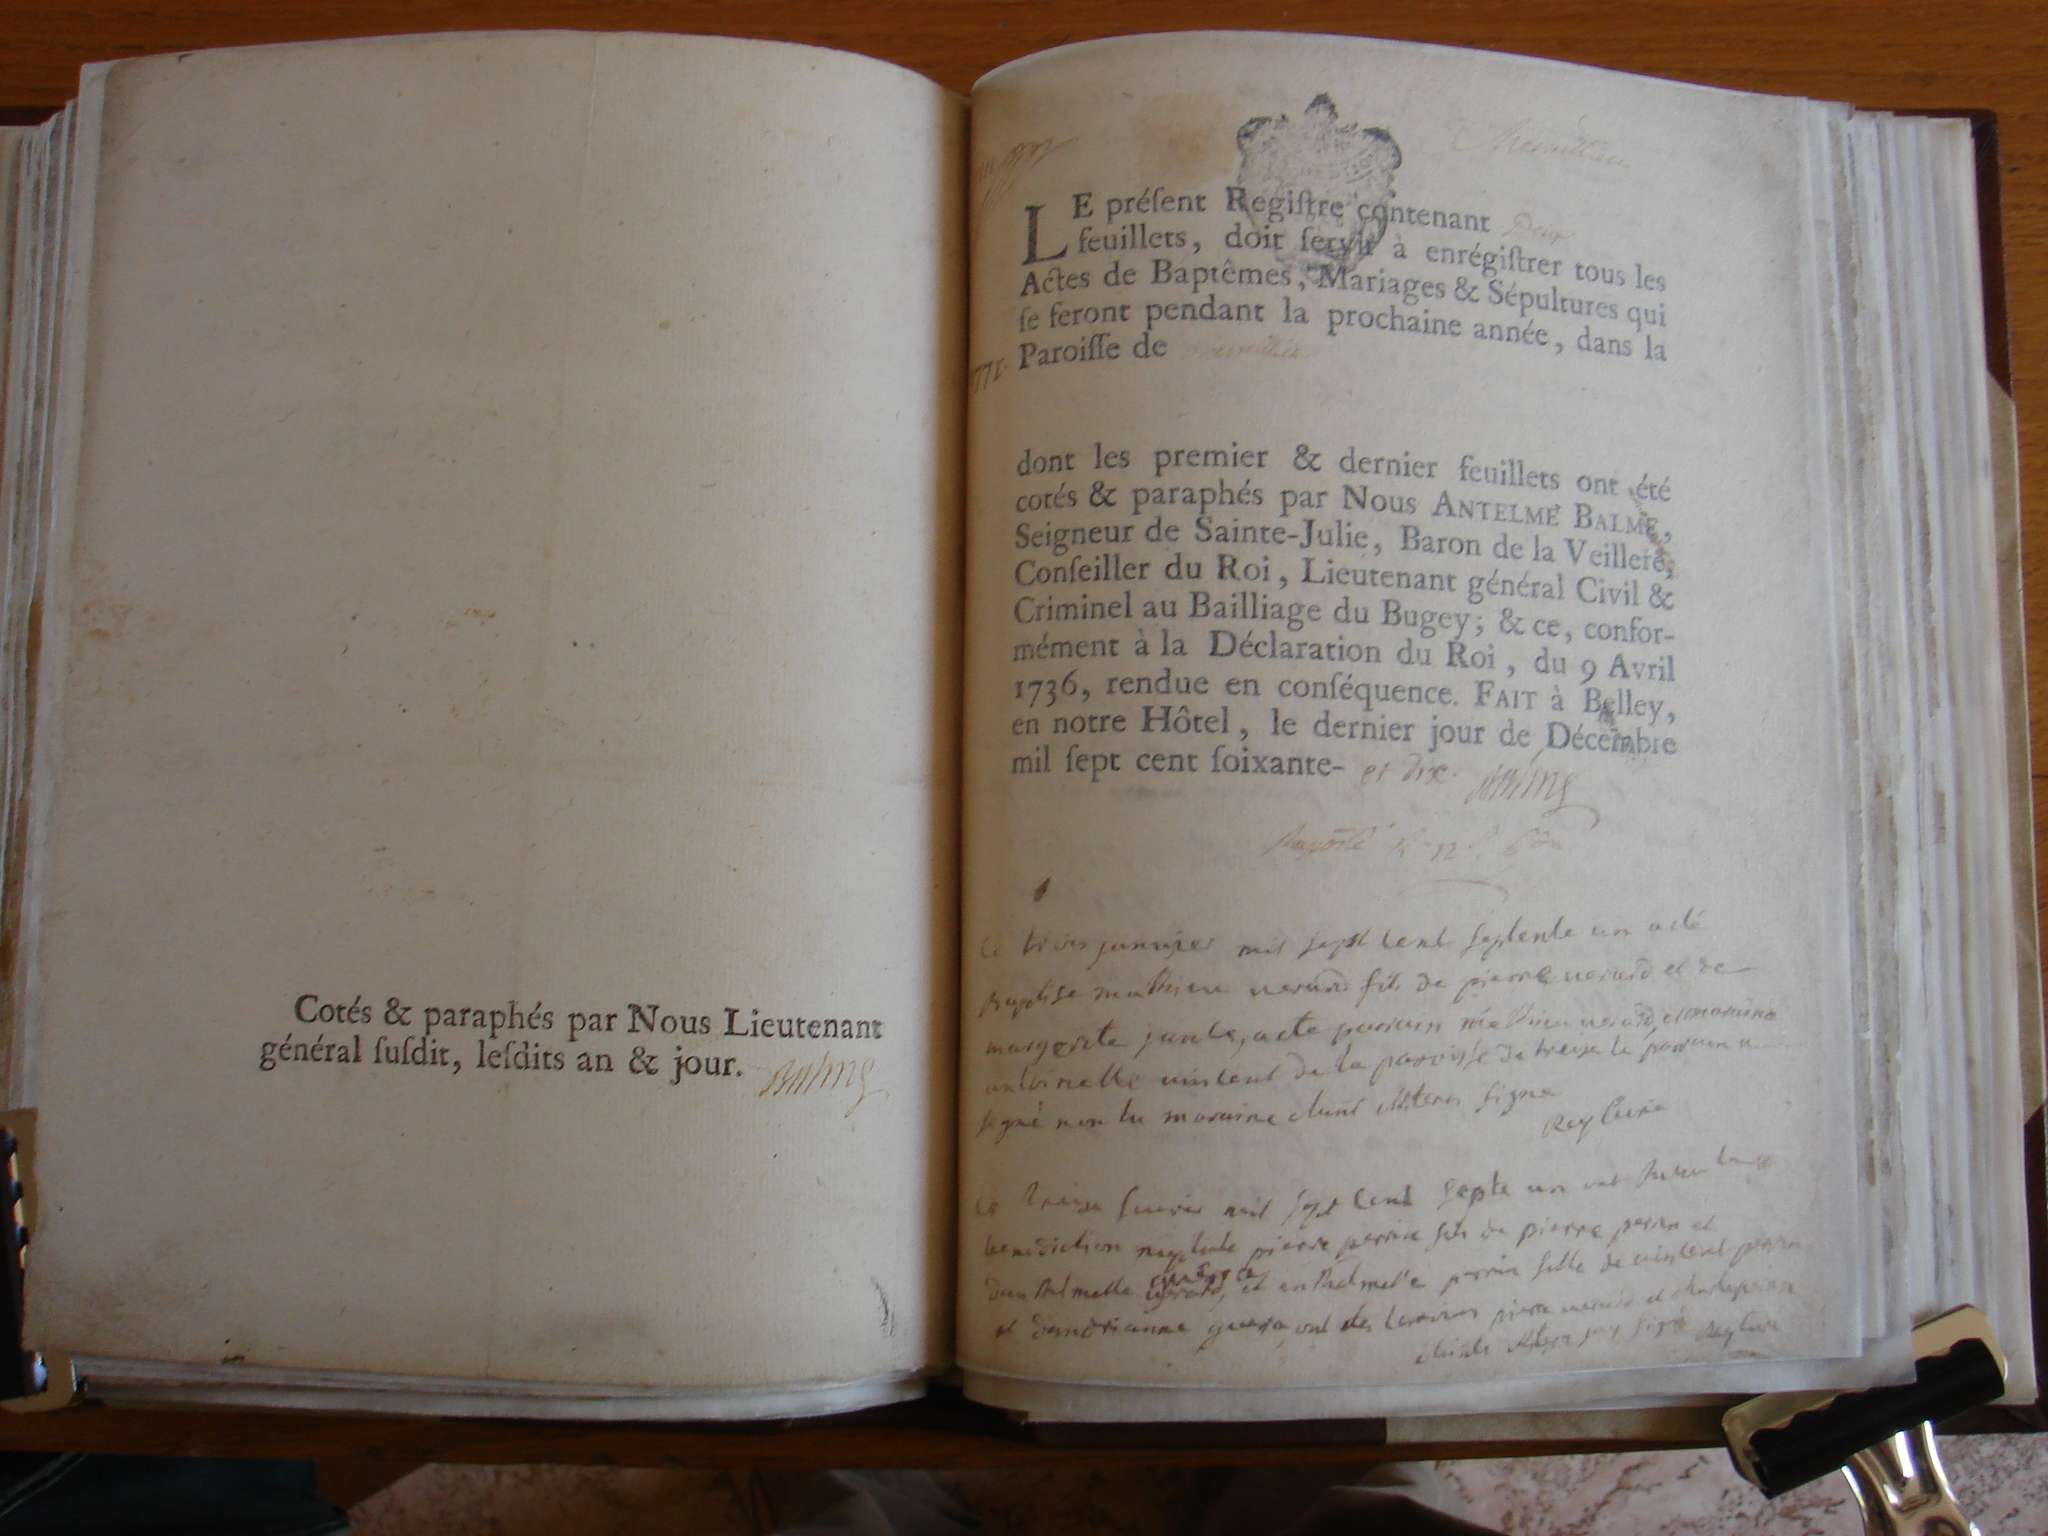 Cotés & paraphés par Nous Lieutenant
général ſuſdit, leſdits an & jour.
LE préſent Regiſtre contenant Deux
feuillets, doit ſervir à enrégiſtrer tous les
Actes de Baptêmes, Mariages & Sépultures qui
ſe feront pendant la prochaine année, dans la
1771. Paroiſſe de
dont les premier & dernier feuillets ont été
cotés & paraphés par Nous ANTELME BALME,
Seigneur de Sainte-Julie, Baron de la Veillere,
Conſeiller du Roi, Lieutenant général Civil &
Criminel au Bailliage du Bugey; & ce, confor-
mément à la Déclaration du Roi, du 9 Avril
1736, rendue en conſéquence. FAIT à Belley,
en notre Hôtel, le dernier jour de Décembre
mil ſept cent ſoixante- et dix
Ce trois janvier mil sept cent septente un a eté
baptise mathieu verard fils de pierre verard et de
margerite jante, a ete parrain mathieu verard, et maraine
antoinette vincent de la paroisse de le parrain a
signé non la maraine illiteres signe
Rey curé
Ce treize fevrier mil sept cent septe un ont
benediction nuptiale pierre perrin fils de pierre perrin et
verard, et anthelmette perrin fille de vincent perrin
et dandrianne ont eté temoins pierre verard et
Rey curé